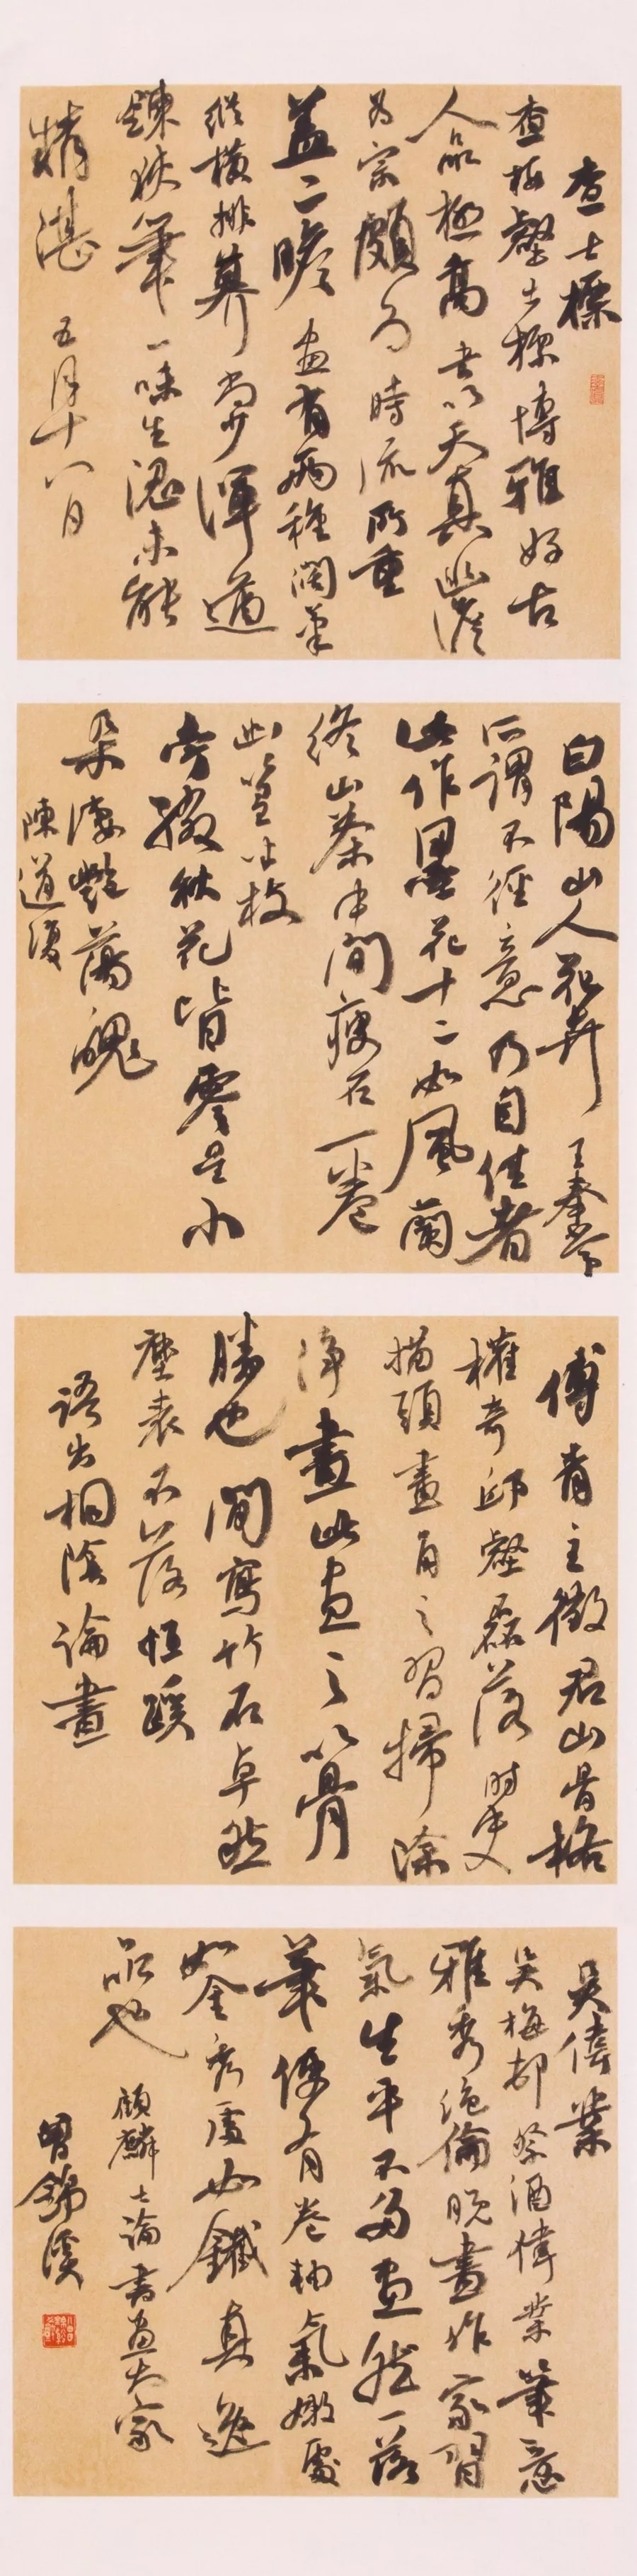 查士標
查梅壑士標博雅好古
人品極高書以天真幽澹
為宗頗為時流所重
蓋二瞻畫有兩種闊筆
縱橫排奡尚少渾遒
諫狹筆一味生澀未能
精湛 五月十八日
白陽山人花卉 王奉常
所謂不經意乃自佳者
此作墨花十二如風蘭
終山茶中間瘦石一卷
幽篁小枝
旁綴秋花皆零星小
朵淒豔蕩魄
陳道復
傅青主徵君山骨格
權奇邱壑磊落時史
描頭畫角之習掃除
淨盡此畫之以骨
勝也間寫竹石卓然
塵表不落恒蹊
語出桐陰論畫
吳偉業
吳梅邨祭酒偉業筆意
雅秀絕倫脫盡作家習
氣生平不多畫然一落
筆便有卷軸氣嫩處
如金秀處如鐵真逸
品也 顧麟士論書畫大家
曾錦溪